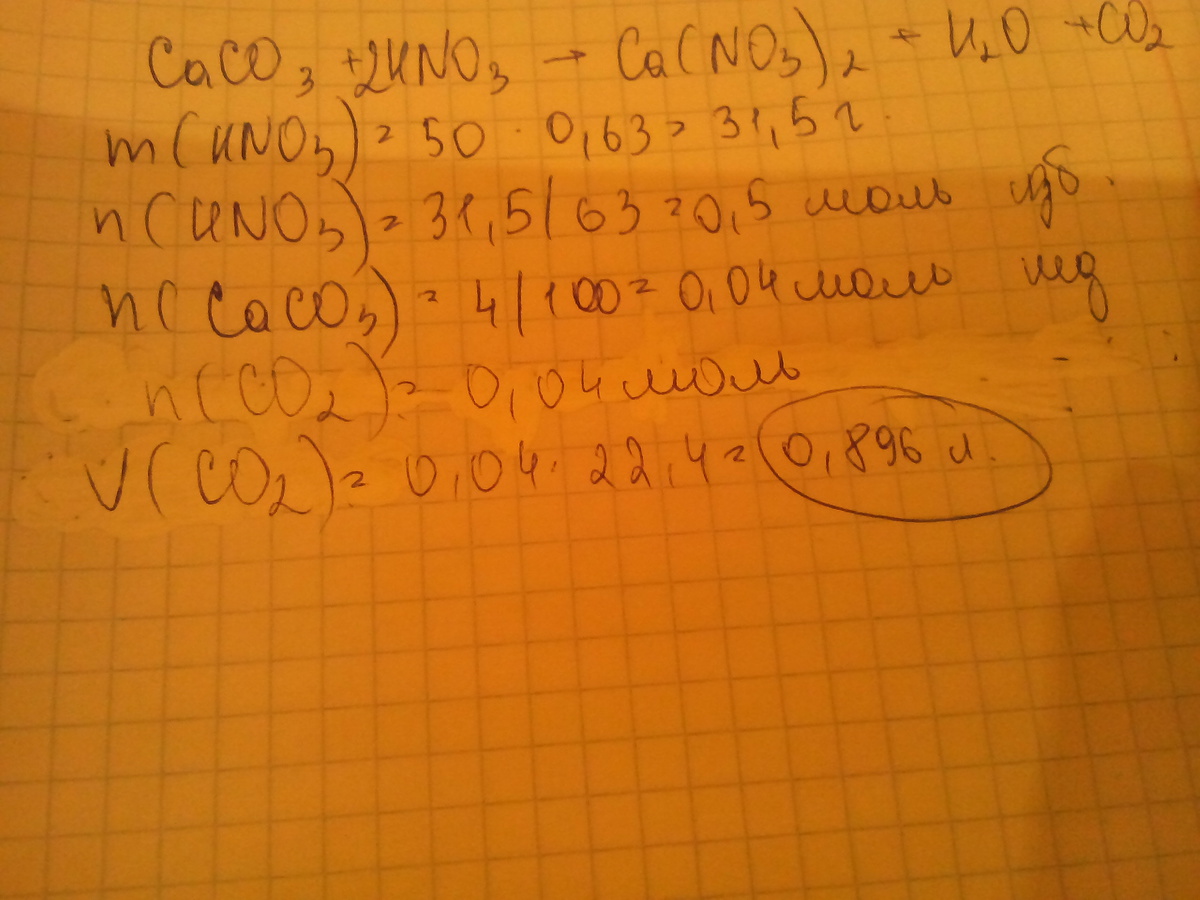 CaCO3 +2HNO3 → Ca(NO3)2 + H2O +CO2
m(HNO3) = 50 · 0,63 = 31,5 г.
n(HNO3) = 31,5/63 = 0,5 моль изб.
n(CaCO3) = 4/100 = 0,04 моль
n(CO2) = 0,04 моль
V(CO2) = 0,04 · 22,4 = 0,896 л.